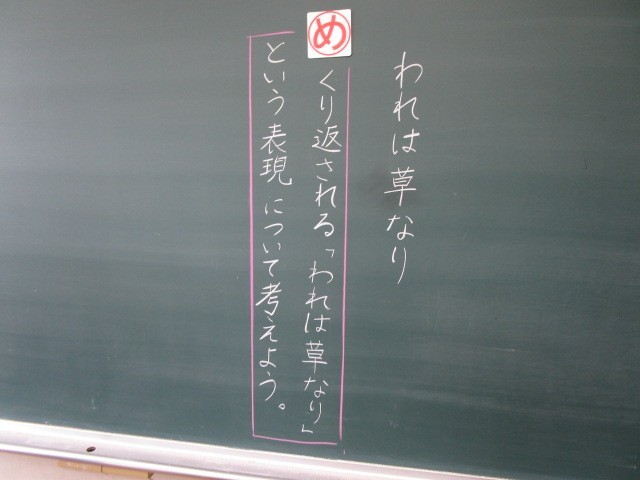 われは草なり
め
くり返される「われは草なり」
という表現について考えよう。